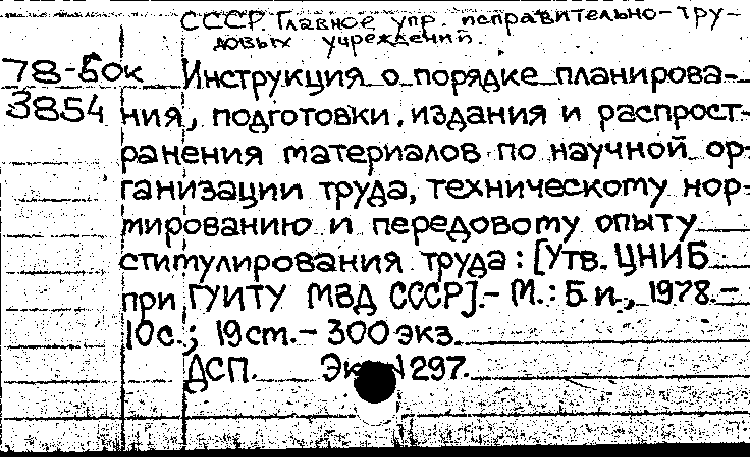 СССР. Главное упр. исправительно-тру-
довых учреждений.
78-Бок Инструкция о порядке планирова-
3854 ния, подготовки, издания и распрост-
ранения материалов по научной ор-
ганизации труда, техническому нор-
мированию и передовому опыту
стимулирования труда: [Утв. ЦНИБ
при ГУИТУ МВД СССР].- М.: Б.и., 1978.-
10с.; 19cm.- 300 экз.
ДСП. 297.